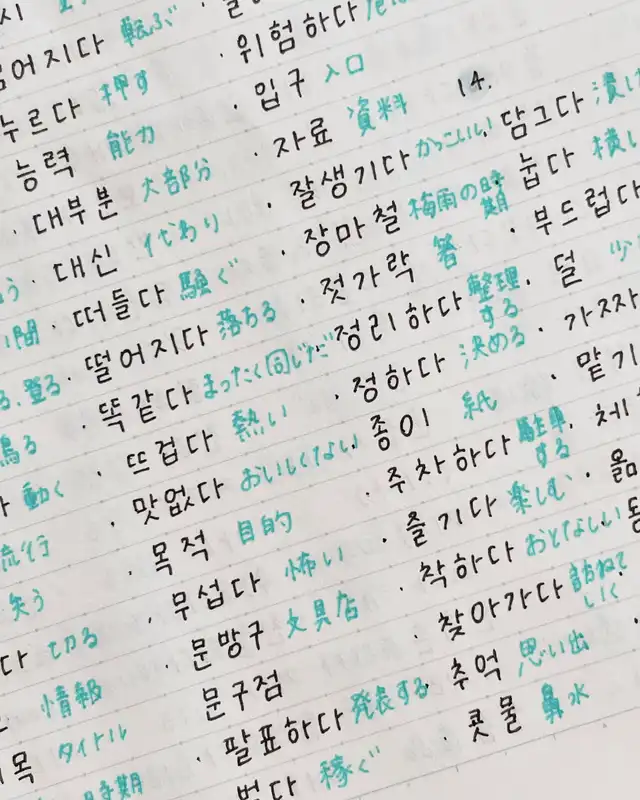 넘어지다 転ぶ
누르다 押す
능력 能力
대부분 大部分
대신 代わり
떠들다 騒ぐ
떨어지다 落ちる
똑같다 まったく同じだ
뜨겁다 熱い
맛없다 おいしくない
목적 目的
무섭다 怖い
문방구 文具店
문구점
팔표하다 発表する
번다 稼ぐ
위험하다
입구 入口
자료 資料
잘생기다 かっこいい
장마철 梅雨の時期
젓가락 箸
정리하다 整理する
정하다 決める
종이 紙
주차하다 駐車する
즐기다 楽しむ
착하다 おとなしい
찾아가다 訪ねていく
추억 思い出
콧물 鼻水
14.
담그다 漬け
눕다 横
부드럽다
덜 少
맡기
動く
流行
失う
切る
情報
タイトル
時期